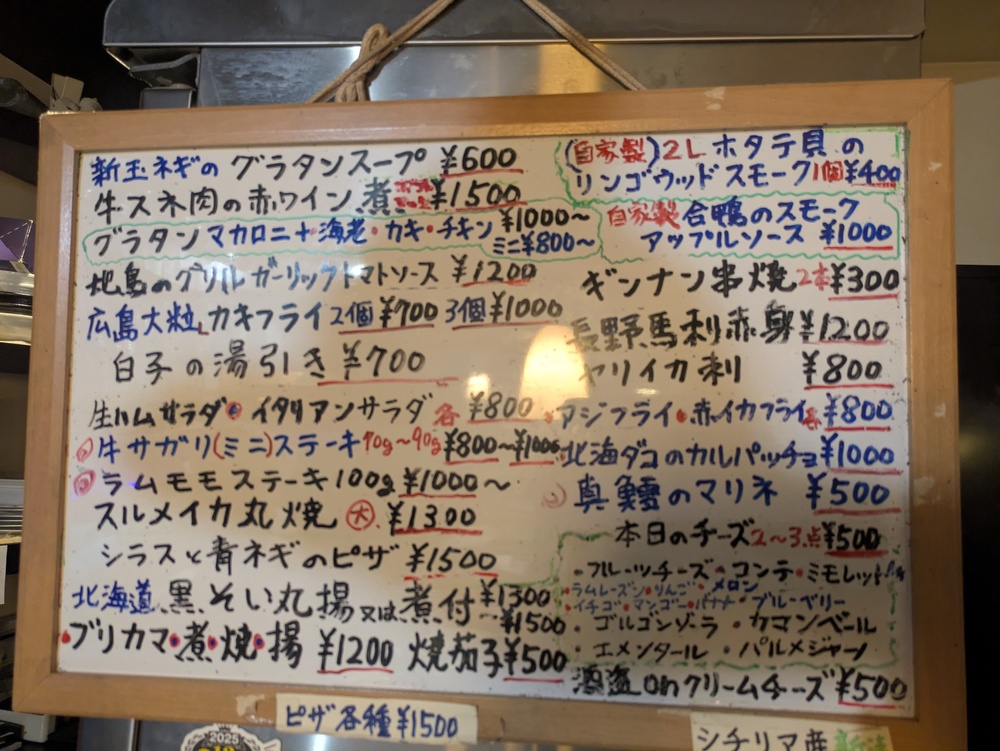 新玉ネギの グラタンスープ ¥600
牛スネ肉の赤ワイン煮 ¥1500
グラタン マカロニ+海老・カキ・チキン ¥1000〜
ミニ¥800〜
地鳥のグリル ガーリックトマトソース ¥1200
広島大粒カキフライ 2個¥700 3個¥1000
白子の湯引き ¥700
生ハムサラダ・イタリアンサラダ 各 ¥800
牛サガリ(ミニ)ステーキ 70g〜90g ¥800〜¥1000
ラムモモステーキ100g ¥1000〜
スルメイカ丸焼 大 ¥1300
シラスと青ネギのピザ ¥1500
北海道 黒そい丸揚 又は 煮付 ¥1300
¥1500
・ブリカマ・煮・焼・揚 ¥1200 焼茄子¥500
(自家製)2L ホタテ貝の
リンゴウッドスモーク 1個¥400
自家製 合鴨のスモーク
アップルソース ¥1000
ギンナン串焼 2本¥300
長野馬刺赤身 ¥1200
ヤリイカ刺 ¥800
・アジフライ・赤イカフライ 各¥800
北海ダコのカルパッチョ ¥1000
真鱈のマリネ ¥500
本日のチーズ 2〜3点¥500
・フルーツチーズ ・コンテ ・ミモレット
・ラムレーズン・りんご・メロン
・イチゴ・マンゴー・バナナ・ブルーベリー
・ゴルゴンゾーラ ・カマンベール
・エメンタール ・パルメジャーノ
酒盗onクリームチーズ ¥500
ピザ各種¥1500
シチリア産
2025